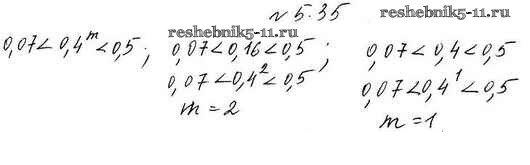 №5.35
reshebnik5-11.ru
reshebnik5-11.ru
0,07<0,4^m<0,5; 0,07<0,16<0,5; 0,07<0,4<0,5
0,07<0,4²<0,5 0,07<0,4¹<0,5
m=2 m=1